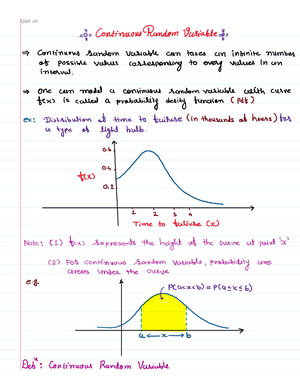 Unit-III
Continuous Random Variable
⇒ Continuous random variable can takes an infinite number
of possible values corresponding to every values in an
interval.
⇒ One can model a continuous random variable with curve
f(x) is called a probability desity function (Pdf)
ex: Distribution of time to failure (in thousands of hours) for
a type of light bulb.
0.6
0.4
0.2
f(x)
1 2 3 4
Time to failure (x)
Note: (1) f(x) represents the height of the curve at point 'x'
(2) For continuous random variable, probability are
areas under the curve
e.g.
P(a<x<b) = P(a≤x≤b)
a ← x → b
Def^n: Continuous Random Variable